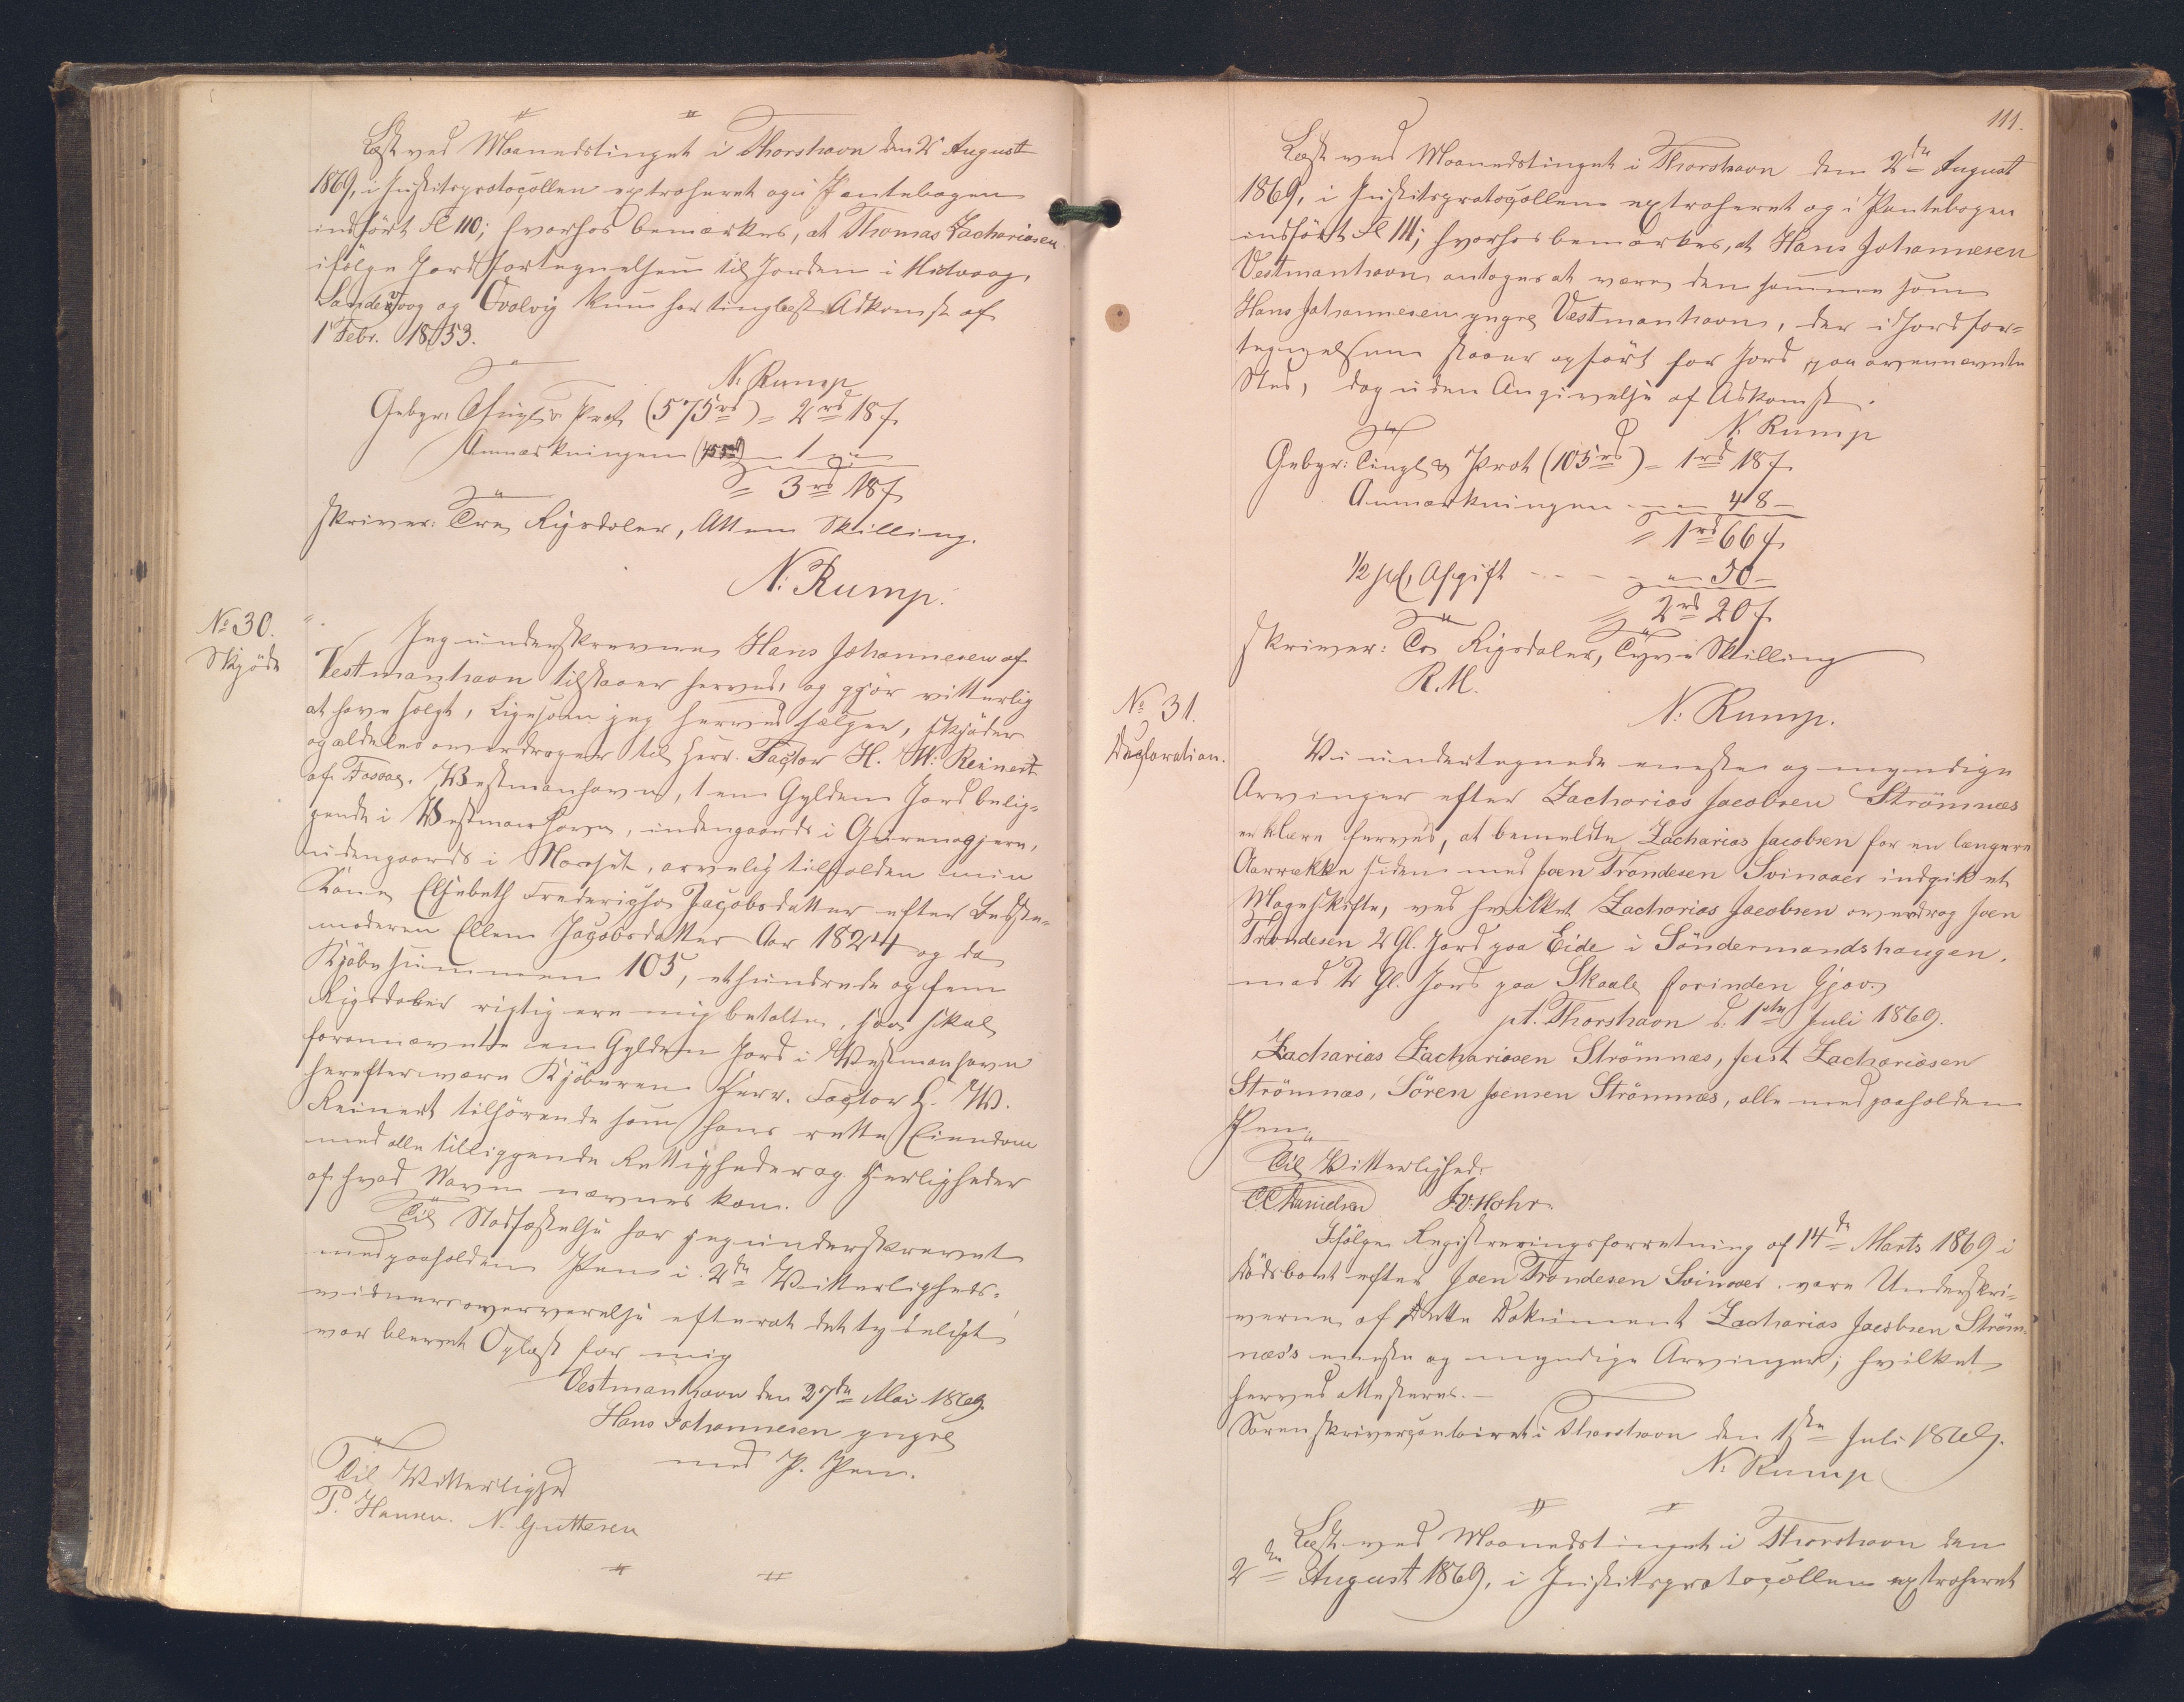 Læst ved Maanedstinget i Thorshavn den 2 August
1869, i Justitsprotocollen extraheret og i Pantebogen
indført Fl 110; hvorhos bemærkes, at Thomas Zachariasen
ifølge Jordfortegnelsen til Jorden i Midvaag,
Sandevaag og Qvalvig kun har tinglæst Adkomst af
1 Febr. 1853.
N. Rump
Gebyr: Tingl & Prot (575 rd) = 2 rd 18 s.
Anmærkningen = 1 - "
= 3 rd 18 s.
skriver: Tre Rigsdaler, Atten Skilling.
N. Rump.
No 30.
Skjöde
Jeg underskrevne Hans Johannesen af
Vestmanhavn tilstaaer herved, og gjör vitterlig
at have solgt, ligesom jeg herved sælger, skjöder
og aldeles overdrager til Herr. Factor H. W. Reinert
af Vestmanhavn, 1 en Gylden Jord belig-
gende i Vestmanhavn, indengaards i
udengaards i, arvelig tilfalden min
Kone Elsebeth Fredericha Jacobsdatter efter Bedste-
moderen Ellen Jacobsdatter Aar 1824 og da
Kjöbesummen 105, ethundrede og fem
Rigsdaler rigtig ere mig betalte, saa skal
forannævnte en Gylden Jord i Vestmanhavn
herefter være Kjöberen Herr. Factor H. W.
Reinert tilhörende som hans rette Eiendom
med alle tilliggende Rettigheder og Herligheder
af hvad Navn nævnes kan.
Til Stadfæstelse har jeg underskrevet
med paaholden Pen i 2de Vitterligheds-
vidners overværelse efterat det tydeligt
var blevet Oplæst for mig
Vestmanhavn den 27de Mai 1869.
Hans Johannesen yngre
med P. Pen.
Til Vitterlighed
P. Hansen. N. Guttesen
111.
Læst ved Maanedstinget i Thorshavn den 2den August
1869, i Justitsprotocollen extraheret og i Pantebogen
indført Fl 111; hvorhos bemærkes, at Hans Johannesen
Vestmanhavn antages at være den samme som
Hans Johannesen yngre Vestmanhavn, der i Jordfor=
tegnelsen staaer opført for Jord paa ovennævnte
Sted, dog uden Angivelse af Adkomst.
N. Rump
Gebyr: Tingl & Prot (105 rd) = 1 rd 18 s.
Anmærkningen - " 48 -
= 1 rd 66 s.
1/2 pCt. Afgift - - - " 50 -
= 2 rd 20 s.
skriver: To Rigsdaler, Tyve Skilling
R. M.
N. Rump.
No 31.
Declaration.
Vi undertegnede eneste og myndige
Arvinger efter Zacharias Jacobsen Strömnæs
erklære herved, at bemeldte Zacharias Jacobsen for en længere
Aarrække siden med Joen Trondesen Svinaaer indgik et
Mageskifte, ved hvilket Zacharias Jacobsen overdrog Joen
Trondesen 2 Gl. Jord paa Eide i Söndermandshaugen,
mod 2 Gl. Jord paa Skaale forinden Gjov.
pt. Thorshavn d: 1ste Juli 1869.
Zacharias Zachariasen Strömnæs, Just Zachariasen
Strömnæs, Sören Joensen Strömnæs, alle med paaholden
Pen
Til Vitterlighed:
CC Danielsen J. v. Mohr.
Ifölge Registreringsforretning af 14de Marts 1869 i
Dödsboet efter Joen Trondesen Svinaaer vare Underskri-
verne af dette Dokument Zacharias Jacobsen Ström-
næs's eneste og myndige Arvinger; hvilket
herved attesteres. -
Sorenskrivercontoiret i Thorshavn den 1ste Juli 1869.
N. Rump
Læst ved Maanedstinget i Thorshavn den
2den August 1869, i Justitsprotocollen extraheret